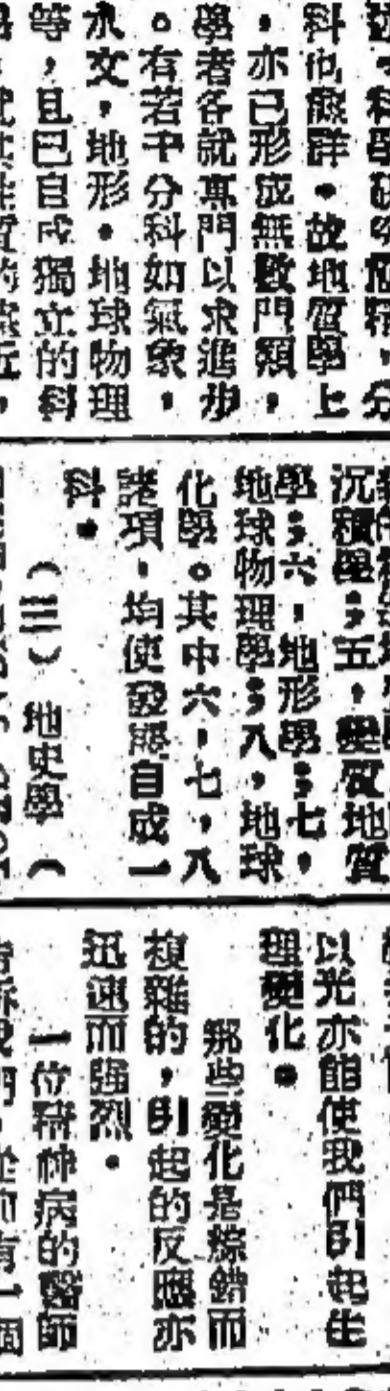 科也無詳。故地質學上
，亦已形成無數門類，
學者各就專門以求進步
。有若干分科如氣象，
水文，地形。地球物理
等，且已自成獨立的科
沉積學；五，變質地質
學；六，地形學；七，
地球物理學；八，地球
化學。其中六，七，八
諸項，均使發展自成一
科。
（三）地史學（
以光亦能使我們引起生
理變化。
那些變化是綜錯而
複雜的，引起的反應亦
迅速而强烈。
一位精神病的醫師